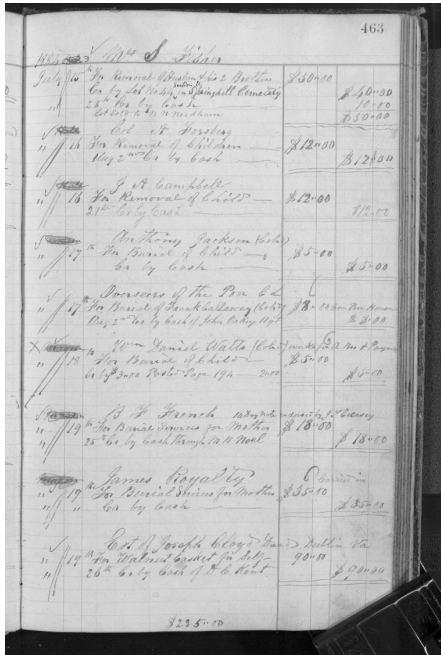 463
Mrs S Fisher
July 15th For Removal of Husband & his 2 Brothers $50-00
Cr by Lot No in Springhill Cemetery $40-00
28th Cr by Cash 10-00
Lot sold to Needham $50-00
Col A Forsberg
" 16 For Removal of Children $12-00
Aug 2nd Cr by Cash $12-00
J A Campbell
" 16 For Removal of Child $12-00
21st Cr by Cash $12-00
Anthony Jackson (Cold)
" 17th For Burial of Child $5-00
" Cr by Cash $5-00
Overseers of the Poor
" 17th For Burial of (Cold) $8-00 from Poor House
Aug 2nd Cr by Cash of John $8-00
Wm Daniel Watts (Cold)
" 18th For Burial of Child $5-00
Cr by 3-00 Posted Page 194 2-00 $5-00
B F French
" 19th For Burial Services for Mother $18-00
" 25th Cr by Cash through Noel $18-00
James Royalty
" 19th For Burial Services for Mother $35-00
" " Cr by Cash $35-00
Est of Joseph Cloyd Dublin Va
" 19th For Walnut Casket for Self 90-00
" 26th Cr by Cash of D C Kent $90-00
$235-00